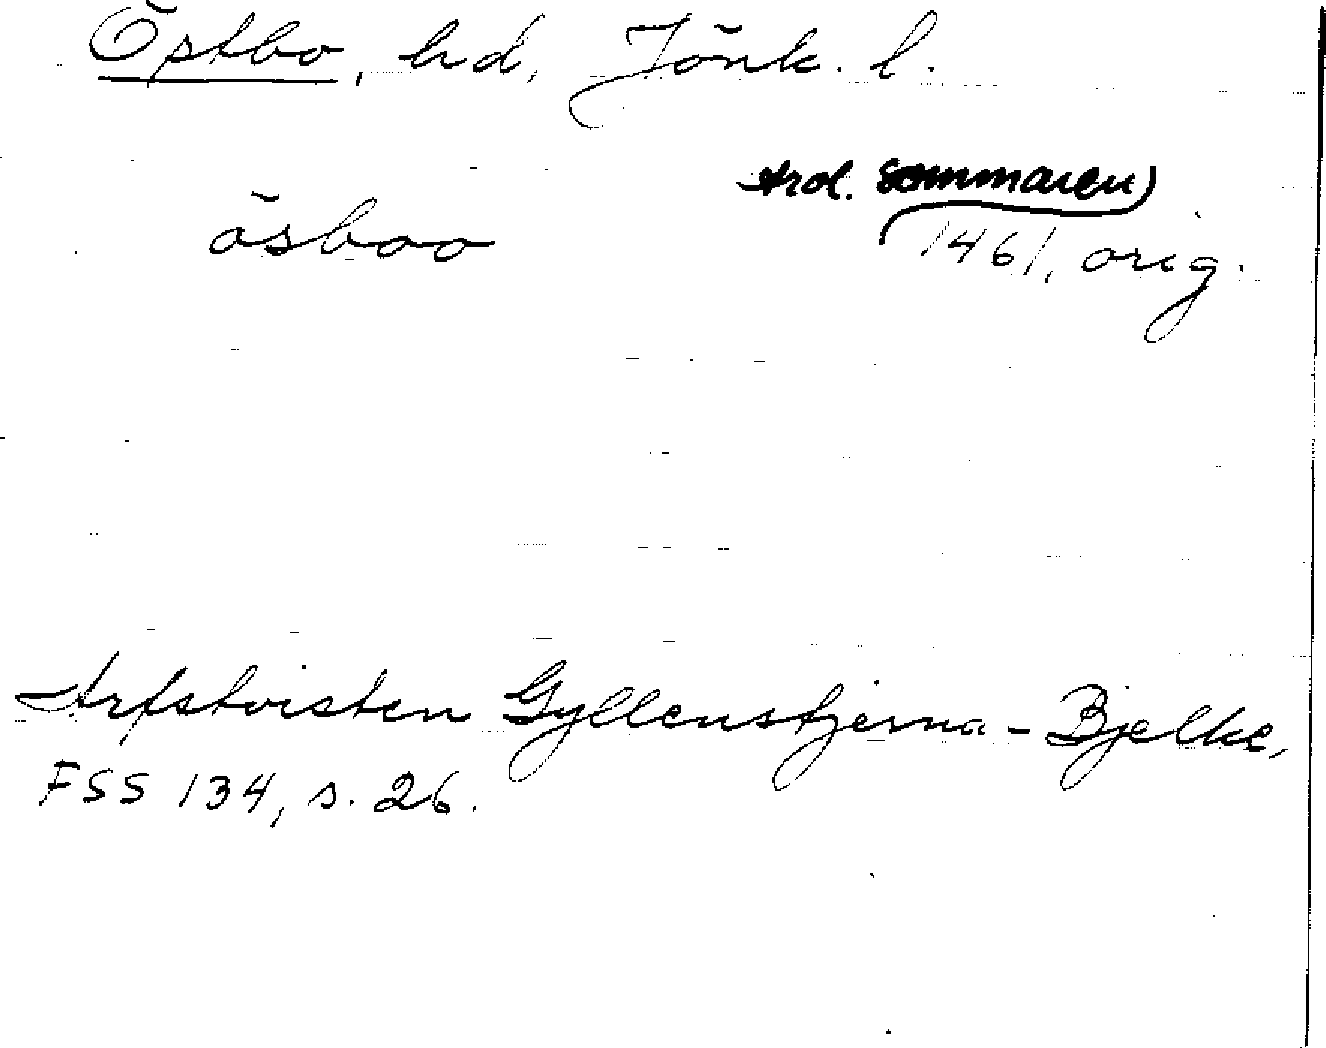 Östbo, hd, Jönk. l.
trol. sommaren
ösboo 1461, orig.
Arfstvisten Gyllenstjerna-Bjelke,
FSS 134, s. 26.